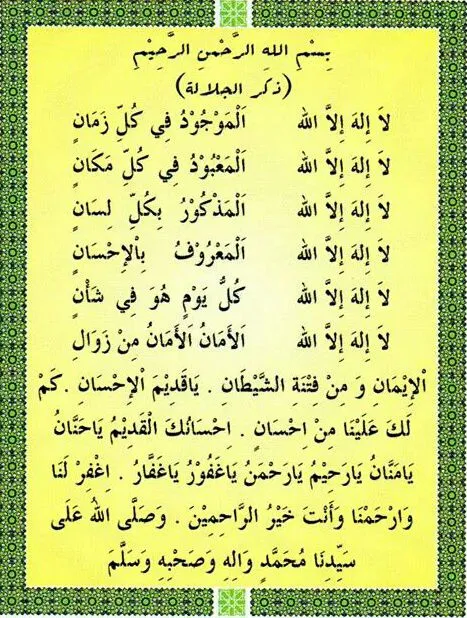 بِسْمِ اللهِ الرَّحْمٰنِ الرَّحِيْمِ
(ذكر الجلالة)
لاَ إِلهَ إِلاَّ الله اَلْمَوْجُوْدُ فِي كُلِّ زَمَانٍ
لاَ إِلهَ إِلاَّ الله اَلْمَعْبُوْدُ فِي كُلِّ مَكَانٍ
لاَ إِلهَ إِلاَّ الله اَلْمَذْكُوْرُ بِكُلِّ لِسَانٍ
لاَ إِلهَ إِلاَّ الله اَلْمَعْرُوْفُ بِالْإِحْسَانِ
لاَ إِلهَ إِلاَّ الله كُلُّ يَوْمٍ هُوَ فِي شَأْنٍ
لاَ إِلهَ إِلاَّ الله اَلأَمَانُ الأَمَانُ مِنْ زَوَالِ
الْإِيْمَانِ وَ مِنْ فِتْنَةِ الشَّيْطَانِ . يَاقَدِيْمَ الْإِحْسَانِ . كَمْ
لَكَ عَلَيْنَا مِنْ اِحْسَانٍ . اِحْسَانُكَ الْقَدِيْمُ يَاحَنَّانُ
يَامَنَّانُ يَارَحِيْمُ يَارَحْمَنُ يَاغَفُوْرُ يَاغَفَّارُ . اِغْفِرْ لَنَا
وَارْحَمْنَا وَأَنْتَ خَيْرُ الرَّاحِمِيْنَ . وَصَلَّى اللهُ عَلَى
سَيِّدِنَا مُحَمَّدٍ وَالِهِ وَصَحْبِهِ وَسَلَّمَ